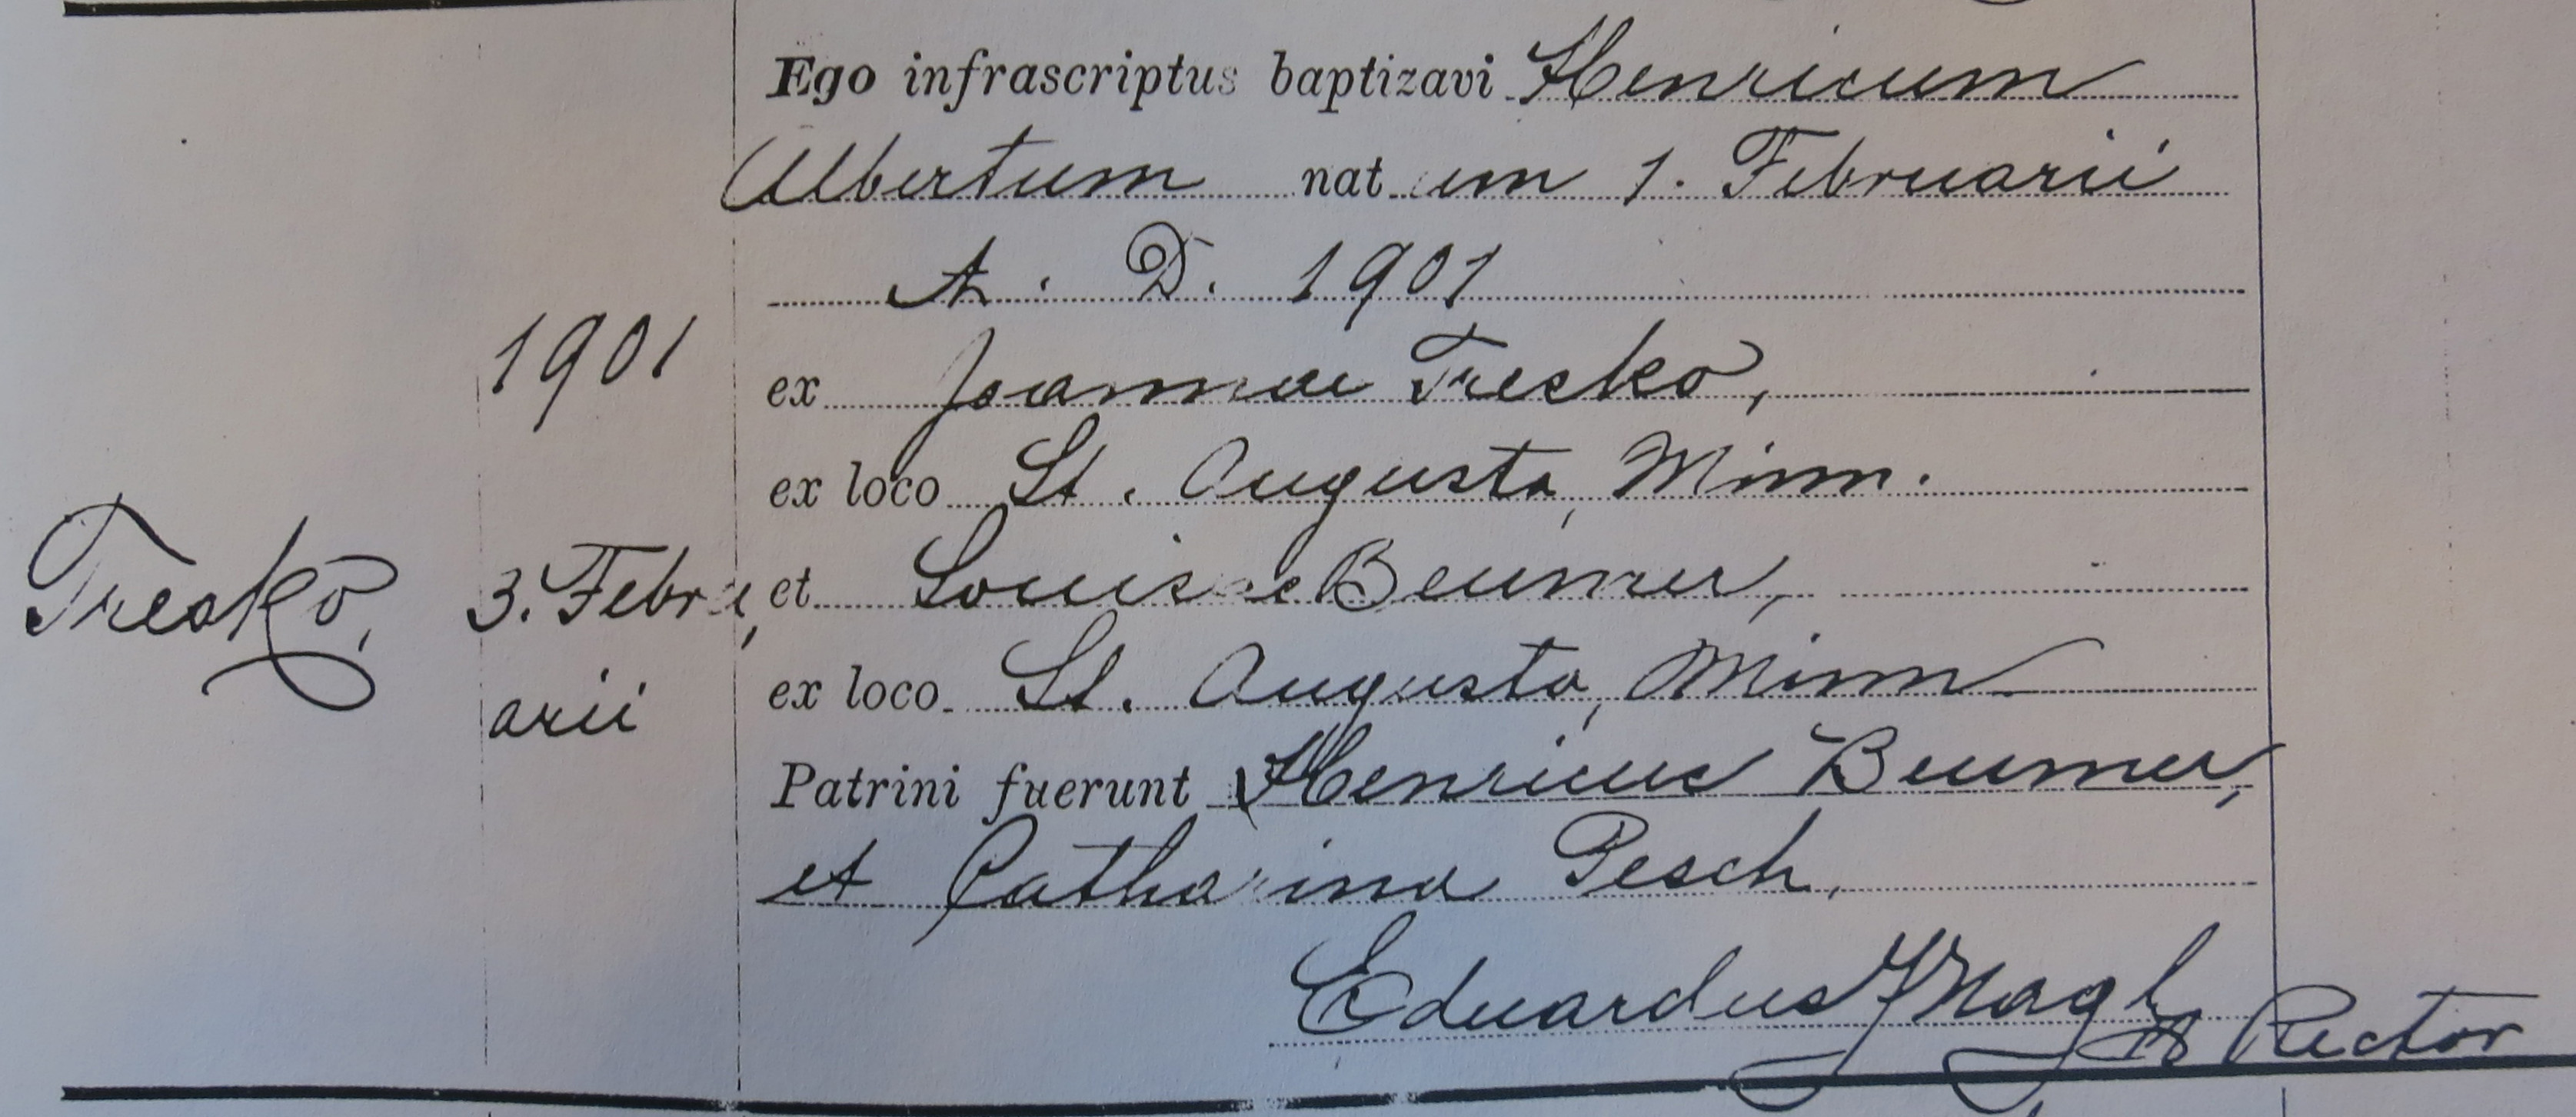 Ego infrascriptus baptizavi Henricum
Albertum natum 1. Februarii
A. D. 1901
1901
ex Joannae Tresko,
ex loco St. Augusta, Minn.
Tresko,
3. Febru,
arii
et Louisae Beumer,
ex loco St. Augusta, Minn
Patrini fuerunt Henricus Beumer,
et Catharina Pesch.
Eduardus Nagl Rector